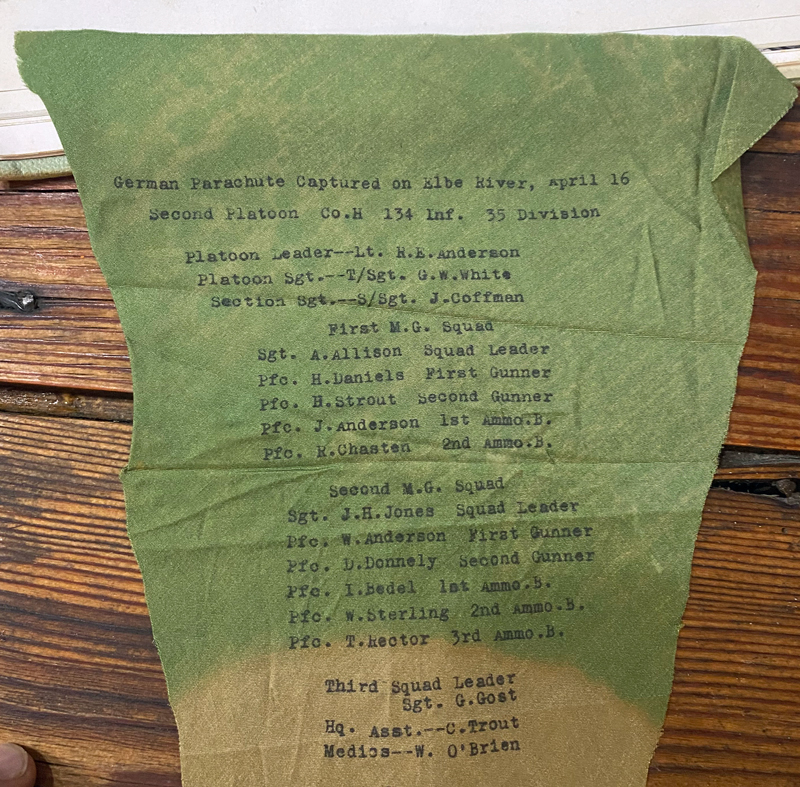 German Parachute Captured on Elbe River, April 16
Second Platoon Co.H 134 Inf. 35 Division
Platoon Leader--Lt. R.E.Anderson
Platoon Sgt.--T/Sgt. G.W.White
Section Sgt.--S/Sgt. J.Coffman
First M.G. Squad
Sgt. A.Allison Squad Leader
Pfc. H.Daniels First Gunner
Pfc. H.Strout Second Gunner
Pfc. J.Anderson 1st Ammo.B.
Pfc. R.Chasten 2nd Ammo.B.
Second M.G. Squad
Sgt. J.H.Jones Squad Leader
Pfc. W.Anderson First Gunner
Pfc. D.Donnely Second Gunner
Pfc. I.Bedel 1st Ammo.B.
Pfc. W.Sterling 2nd Ammo.B.
Pfc. T.Rector 3rd Ammo.B.
Third Squad Leader
Sgt. G.Gost
Hq. Asst.--C.Trout
Medics--W. O'Brien